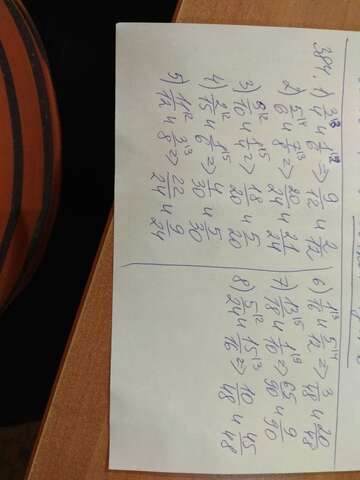 384. 1) 3/4 |3 и 1/6 |2 => 9/12 и 2/12
2) 5/6 |4 и 7/8 |3 => 20/24 и 21/24
3) 9/10 |2 и 1/4 |5 => 18/20 и 5/20
4) 2/15 |2 и 1/6 |5 => 4/30 и 5/30
5) 11/12 |2 и 3/8 |3 => 22/24 и 9/24
6) 1/16 |3 и 5/12 |4 => 3/48 и 20/48
7) 13/18 |5 и 1/10 |9 => 65/90 и 9/90
8) 5/24 |2 и 15/16 |3 => 10/48 и 45/48